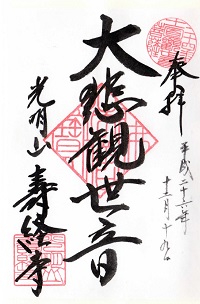 奉拝
平成二十六年
十二月十九日
大悲観世音
光明山
寿経寺